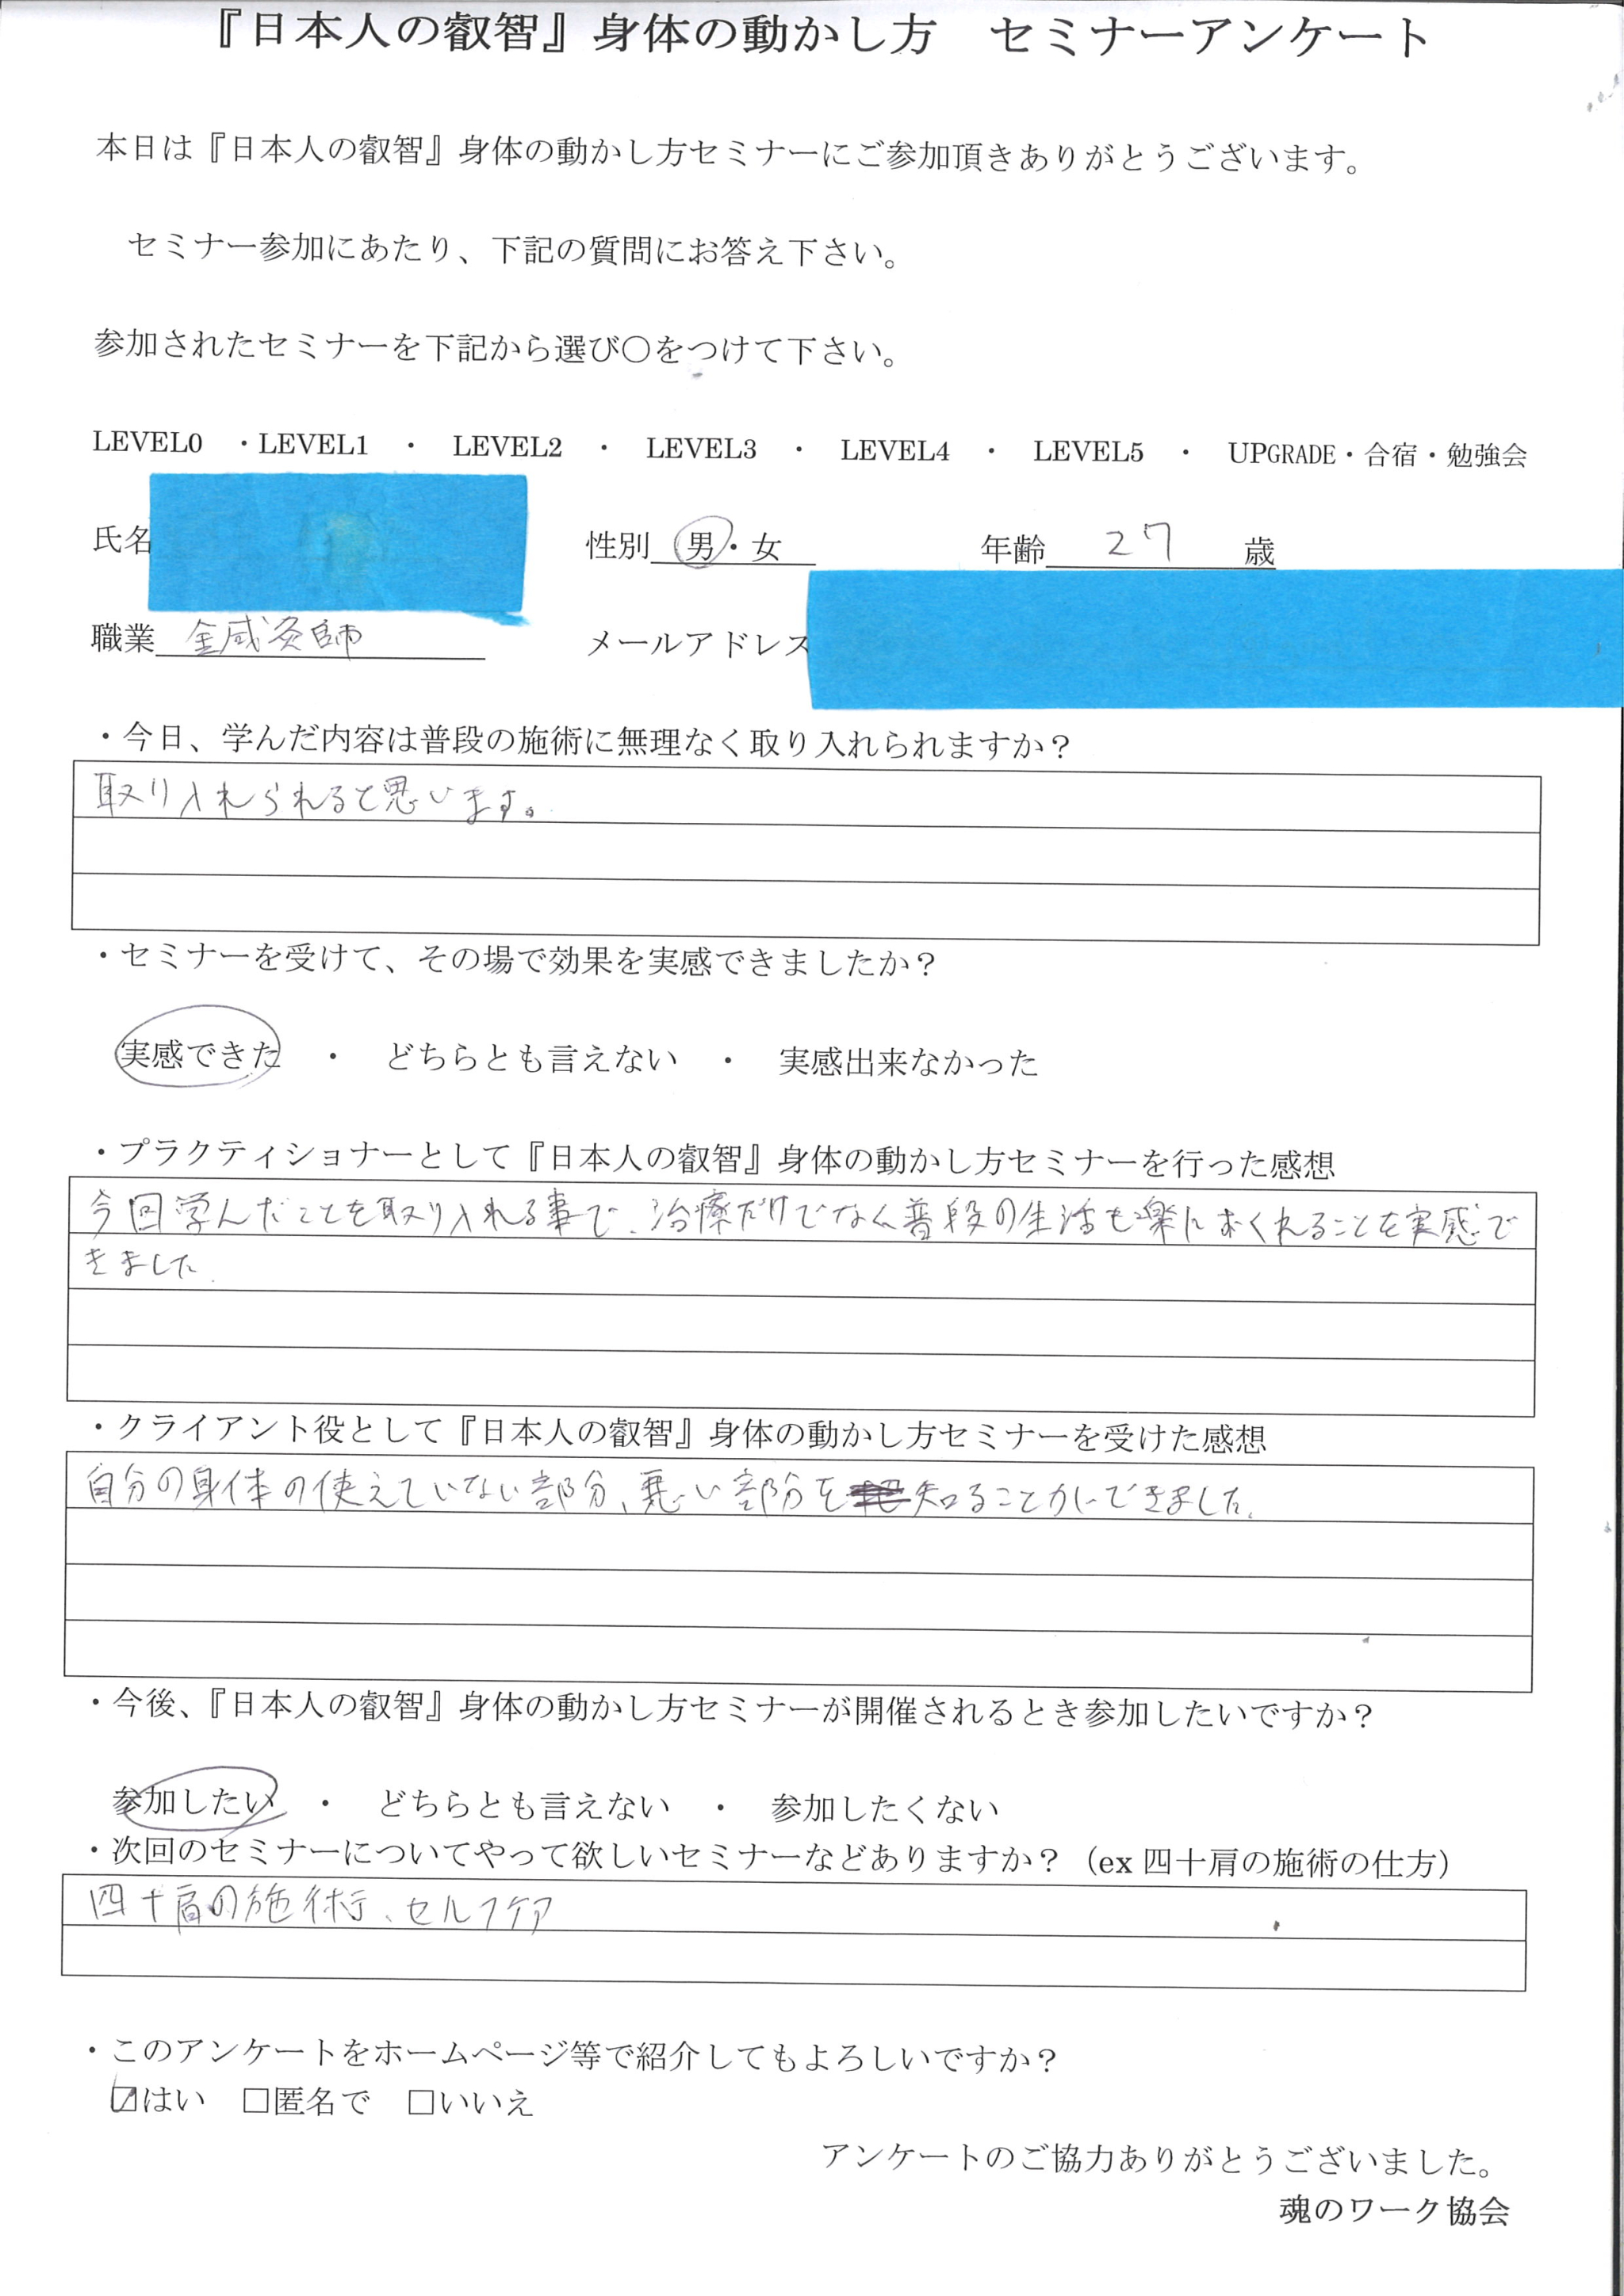 『日本人の叡智』身体の動かし方　セミナーアンケート
本日は『日本人の叡智』身体の動かし方セミナーにご参加頂きありがとうございます。
セミナー参加にあたり、下記の質問にお答え下さい。
参加されたセミナーを下記から選び〇をつけて下さい。
LEVEL0　・LEVEL1　・　LEVEL2　・　LEVEL3　・　LEVEL4　・　LEVEL5　・　UPGRADE・合宿・勉強会
氏名　性別　男・女　年齢　27　歳
職業　鍼灸師　メールアドレス
・今日、学んだ内容は普段の施術に無理なく取り入れられますか？
取り入れられると思います。
・セミナーを受けて、その場で効果を実感できましたか？
実感できた　・　どちらとも言えない　・　実感出来なかった
・プラクティショナーとして『日本人の叡智』身体の動かし方セミナーを行った感想
今回学んだことを取り入れる事で、治療だけでなく普段の生活も楽におくれることを実感で
きました.
・クライアント役として『日本人の叡智』身体の動かし方セミナーを受けた感想
自分の身体の使えていない部分、悪い部分を知ることができました。
・今後、『日本人の叡智』身体の動かし方セミナーが開催されるとき参加したいですか？
参加したい　・　どちらとも言えない　・　参加したくない
・次回のセミナーについてやって欲しいセミナーなどありますか？（ex 四十肩の施術の仕方）
四十肩の施術、セルフケア
・このアンケートをホームページ等で紹介してもよろしいですか？
☑はい　□匿名で　□いいえ
アンケートのご協力ありがとうございました。
魂のワーク協会